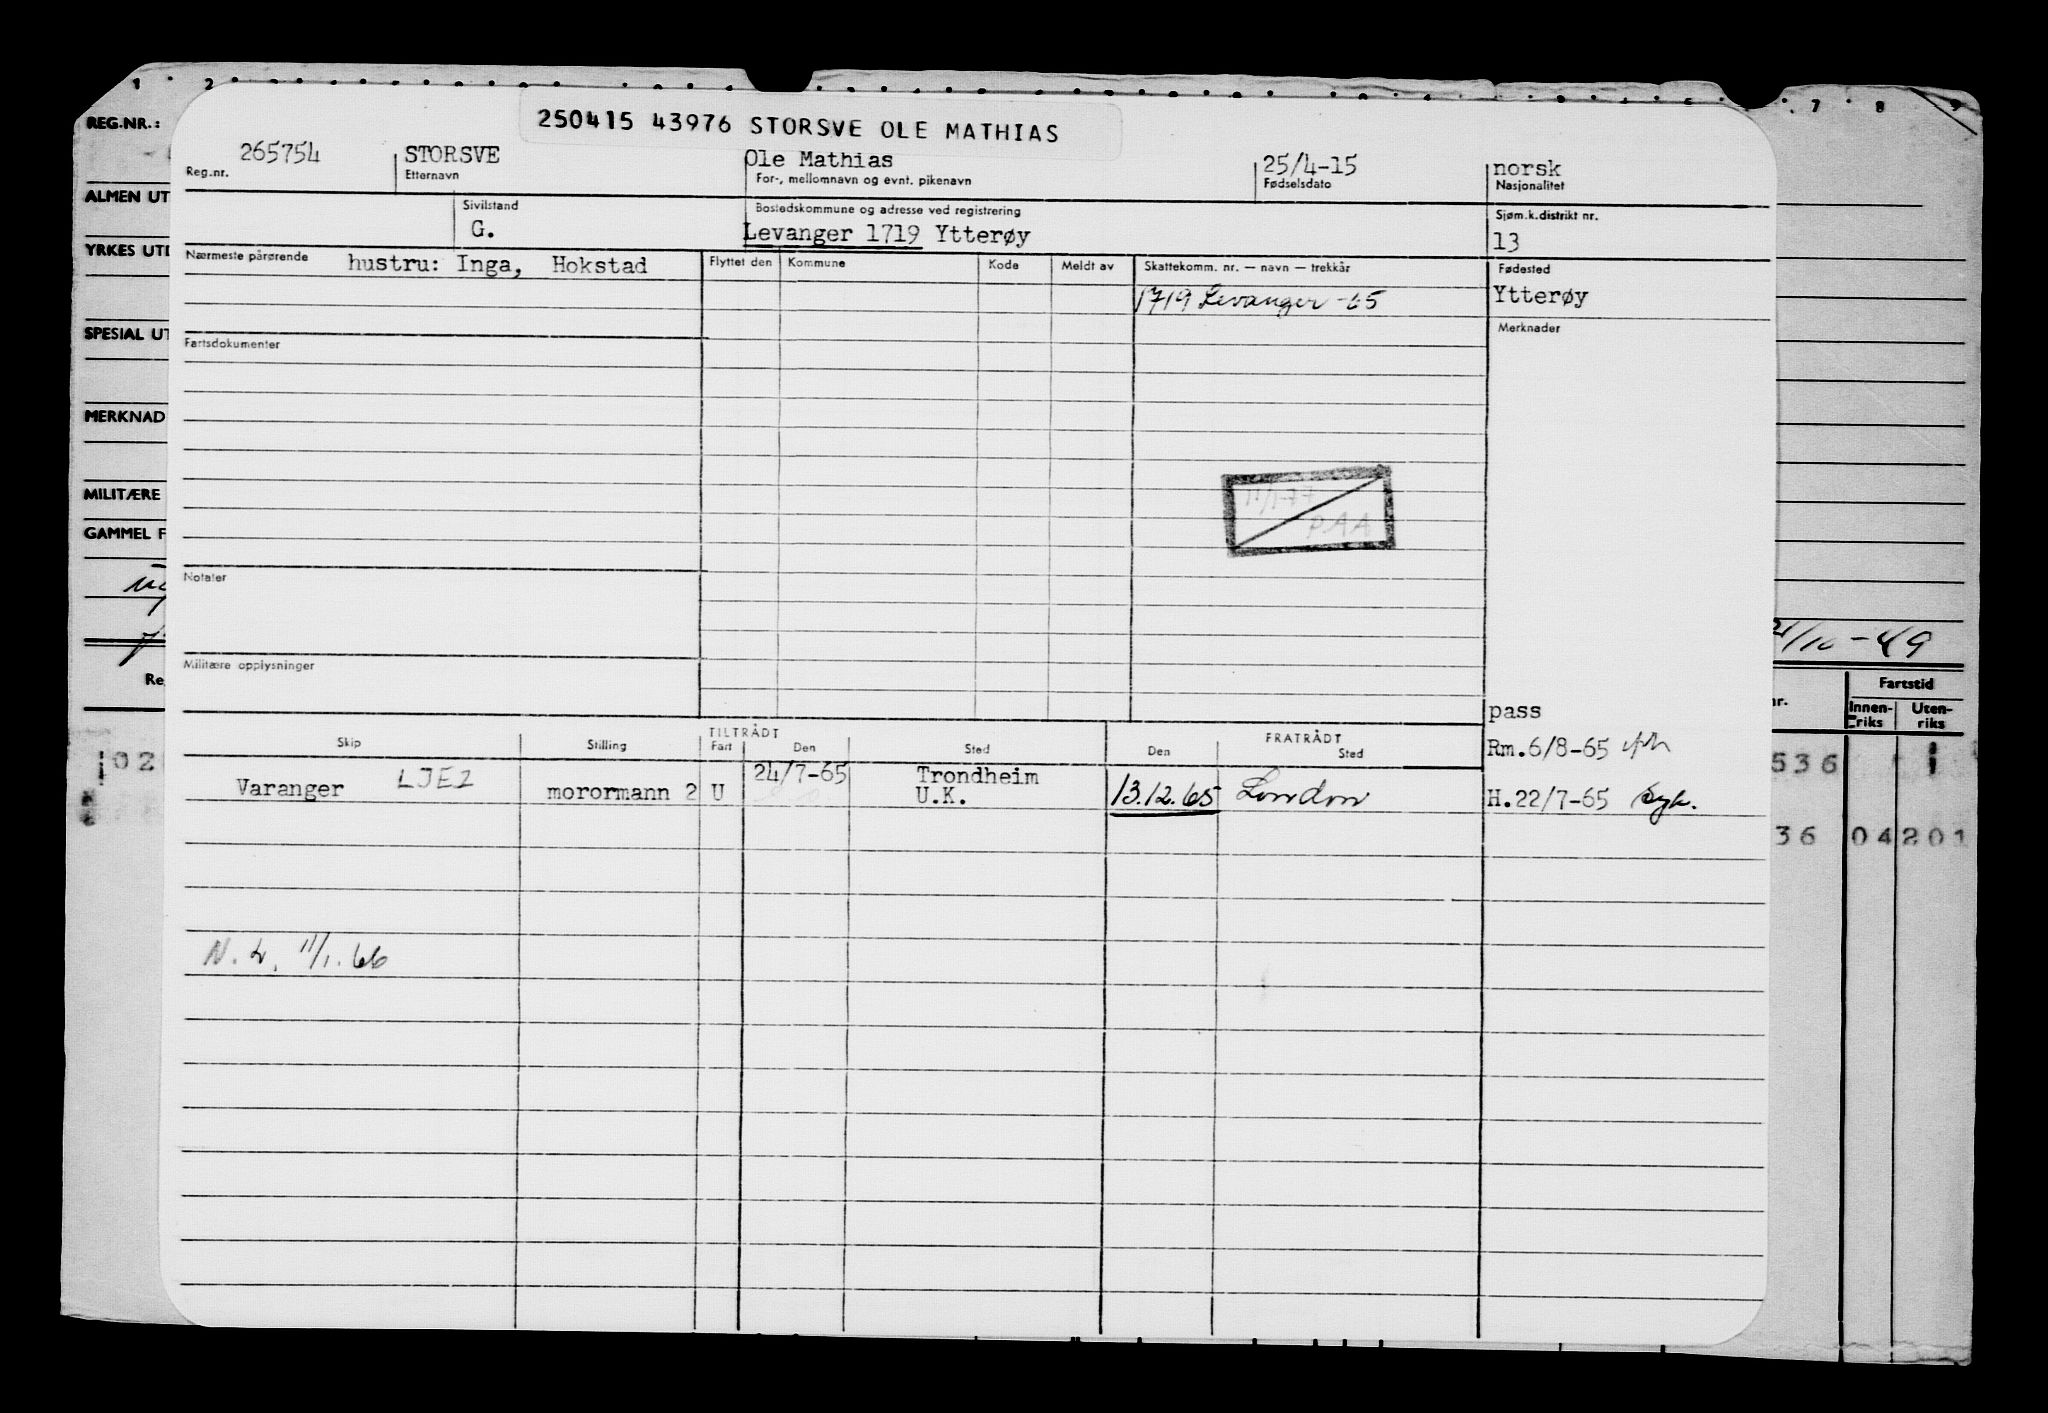 1 2 7 8 9
REG.NR.:
250415 43976 STORSVE OLE MATHIAS
265754 STORSVE Ole Mathias 25/4-15 norsk
Reg.nr. Etternavn For-, mellomnavn og evnt. pikenavn Fødselsdato Nasjonalitet
ALMEN UT
Sivilstand Bostedskommune og adresse ved registrering Sjøm.k.distrikt nr.
G. Levanger 1719 Ytterøy 13
YRKES UTD
Nærmeste pårørende hustru: Inga, Hokstad Flyttet den Kommune Kode Meldt av Skattekomm. nr. — navn — trekkår Fødested
1719 Levanger -65 Ytterøy
SPESIAL UT
Fartsdokumenter Merknader
MERKNAD
MILITÆRE
11/1-77
PAA
GAMMEL F
Notater
21/10-49
Militære opplysninger
Re
nr. Fartstid
Innenriks Utenriks
pass
TILTRÅDT FRATRÅDT
Skip Stilling Fart Den Sted Den Sted
Rm.6/8-65
02 536 1
Varanger LJEI morormann 2 U 24/7-65 Trondheim
U.K. 13.12.65 London H.22/7-65 Syk.
36 04 201
N. 2. 11/1.66